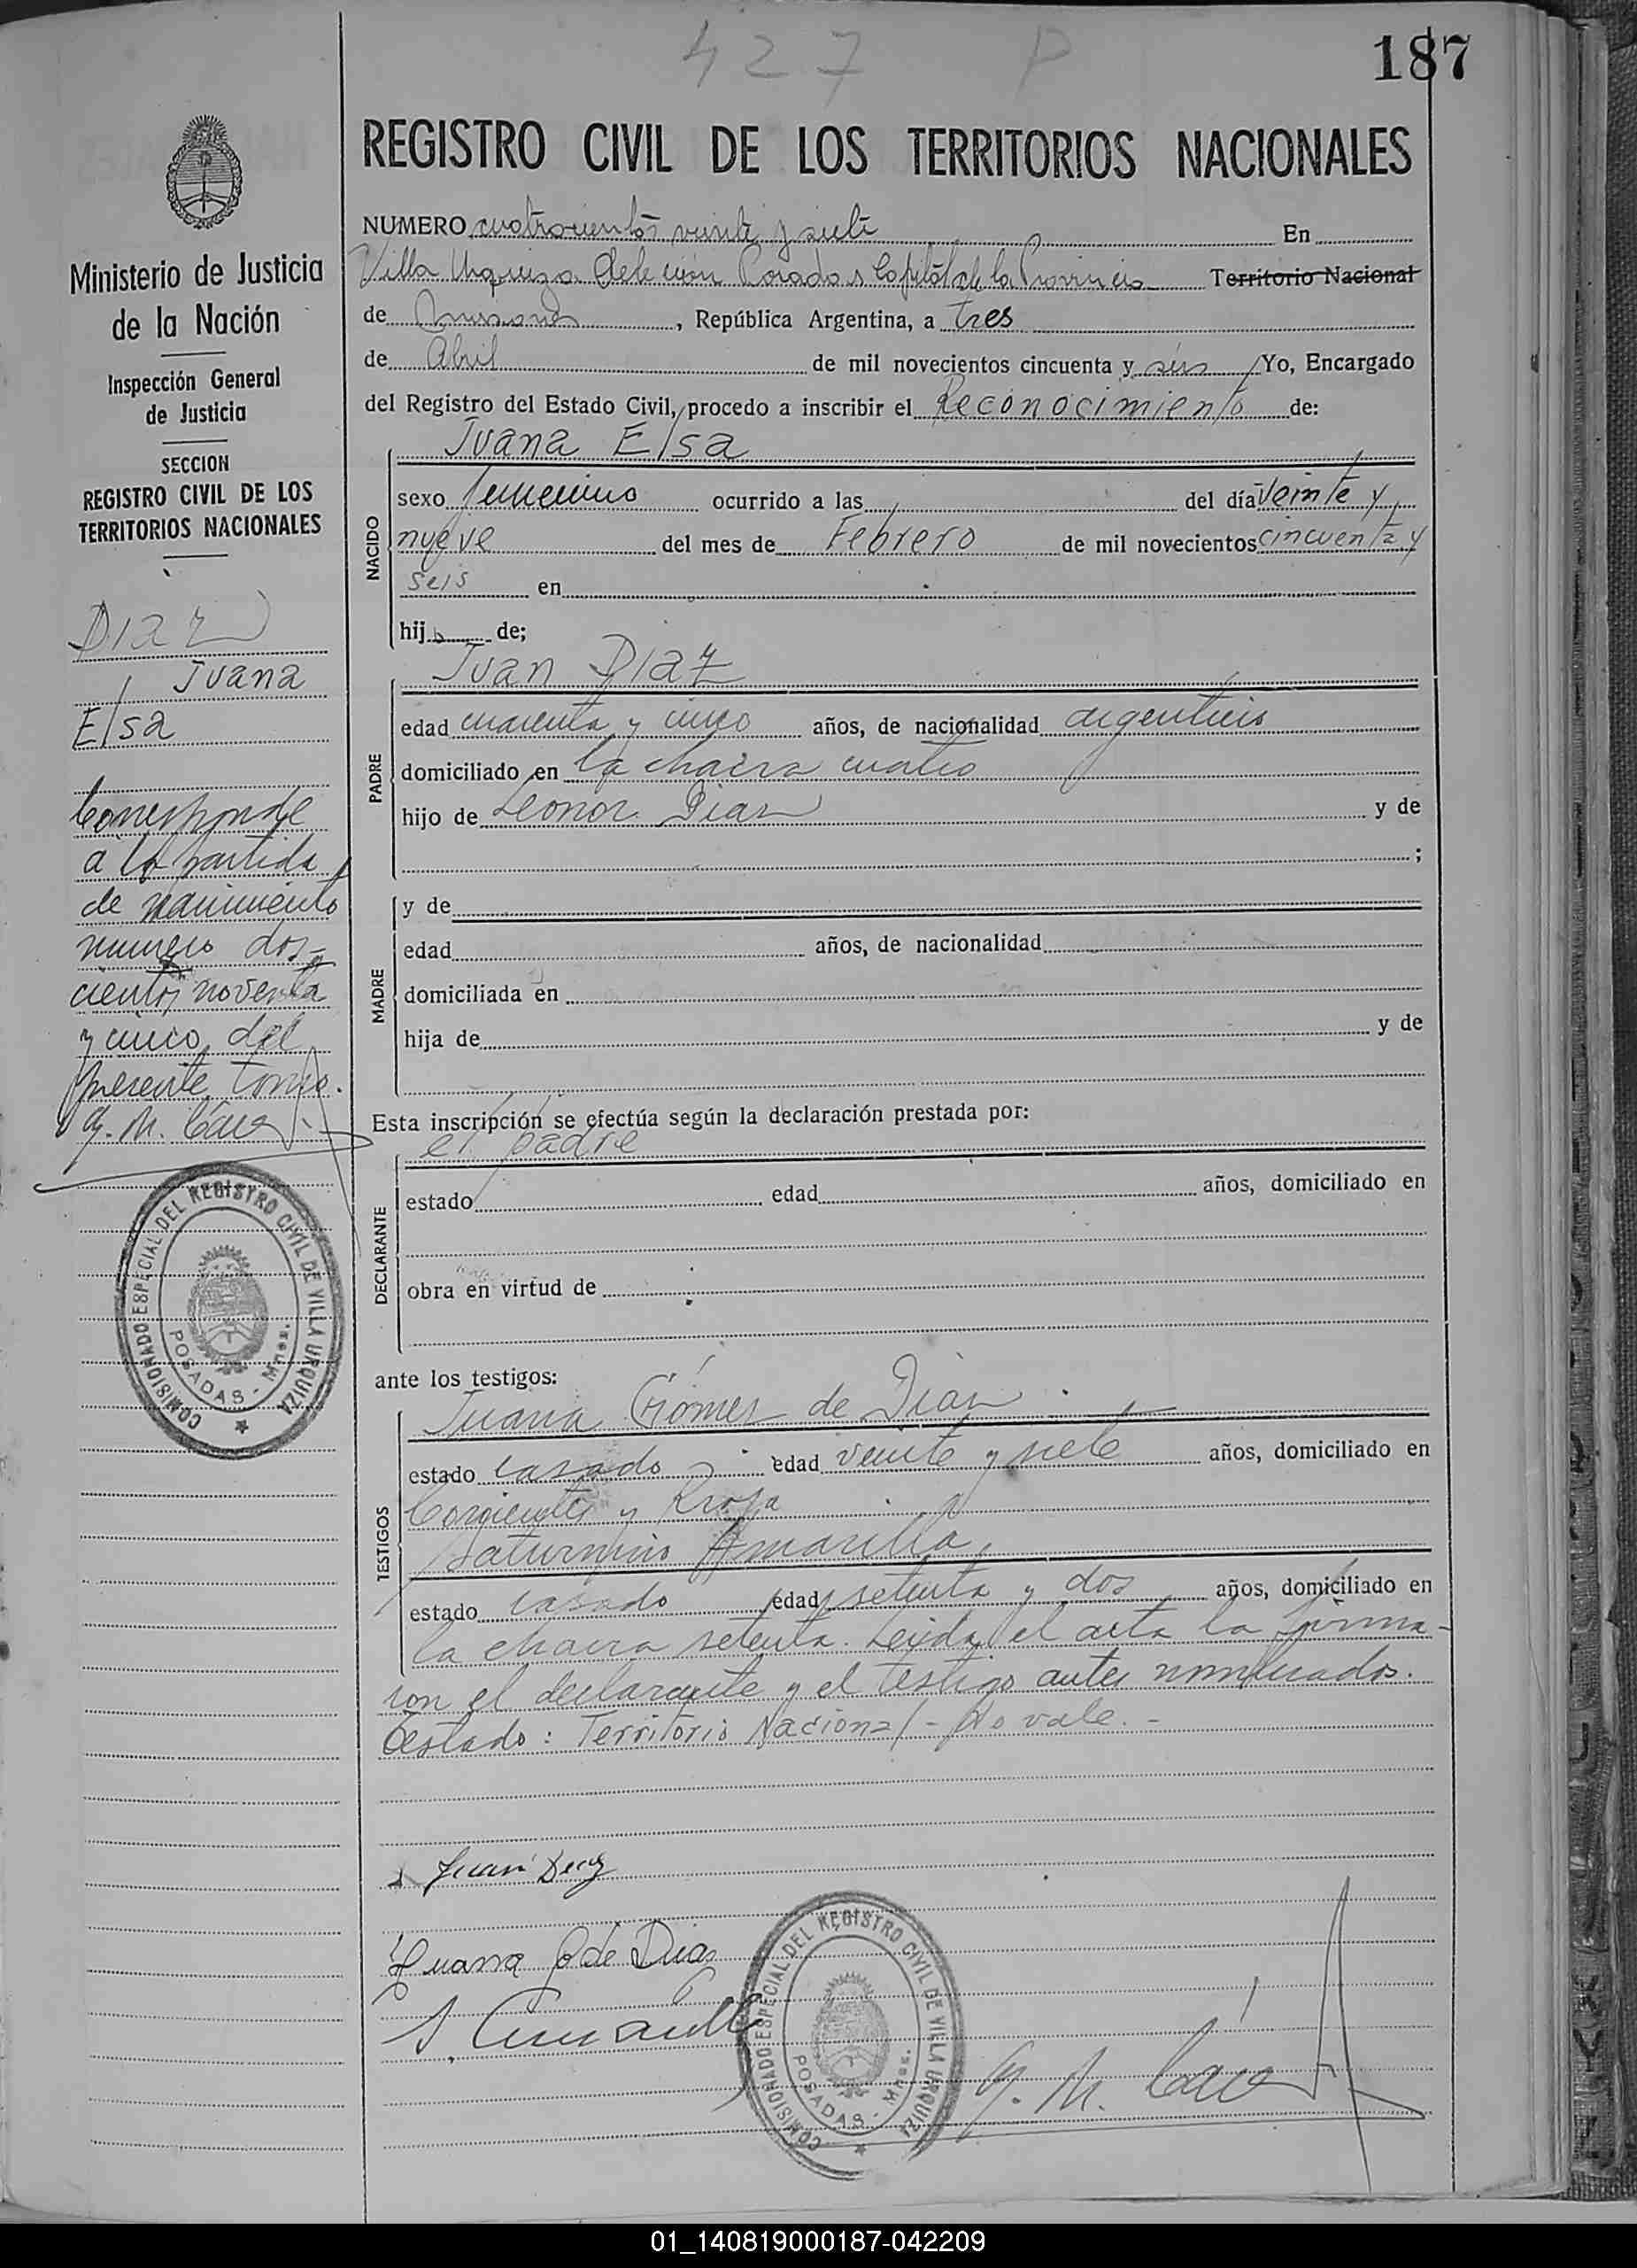 427 P
187
REGISTRO CIVIL DE LOS TERRITORIOS NACIONALES
NUMERO cuatrocientos veinte y siete En
Villa Urquiza Posadas Capital de la Provincia Territorio Nacional
de Misiones, República Argentina, a tres
de Abril de mil novecientos cincuenta y seis Yo, Encargado
del Registro del Estado Civil, procedo a inscribir el Reconocimiento de:
Juana Elsa
NACIDO
sexo femenino ocurrido a las del día Veinte y
nueve del mes de Febrero de mil novecientos cincuenta y
seis en
hija de;
Juan Diaz
PADRE
edad cuarenta y cinco años, de nacionalidad argentino
domiciliado en la chacra cuatro
hijo de Leonor Diaz y de
;
MADRE
y de
edad años, de nacionalidad
domiciliada en
hija de y de
Esta inscripción se efectúa según la declaración prestada por:
el padre
DECLARANTE
estado edad años, domiciliado en
obra en virtud de
ante los testigos:
Juana Gómez de Diaz
TESTIGOS
estado casado edad veinte y siete años, domiciliado en
Corrientes y Rioja
Saturnino Amarilla
estado casado edad setenta y dos años, domiciliado en
la chacra setenta. Leída el acta la firma-
ron el declarante y el testigo antes nombrados.
Testado: Territorio Nacional - No vale. -
Juan Diaz
Juana G de Dias
S. Amarilla
G. M.
COMISIONADO ESPECIAL DEL REGISTRO CIVIL DE VILLA URQUIZA
POSADAS - Mnes.
Ministerio de Justicia
de la Nación
Inspección General
de Justicia
SECCION
REGISTRO CIVIL DE LOS
TERRITORIOS NACIONALES
Diaz
Juana
Elsa
Corresponde
a la partida
de nacimiento
número dos-
cientos noventa
y cinco del
presente tomo.
G. M.
COMISIONADO ESPECIAL DEL REGISTRO CIVIL DE VILLA URQUIZA
POSADAS - Mnes.
01_140819000187-042209